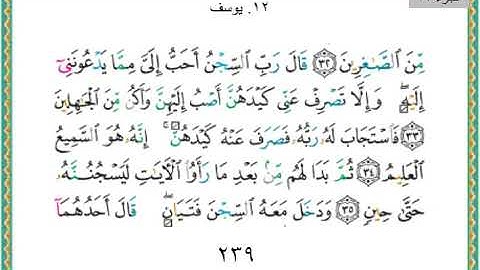 ١٢. يوسف
مِّنَ ٱلصَّٰغِرِينَ ٣٢ قَالَ رَبِّ ٱلسِّجْنُ أَحَبُّ إِلَىَّ مِمَّا يَدْعُونَنِىٓ
إِلَيْهِ ۖ وَإِلَّا تَصْرِفْ عَنِّى كَيْدَهُنَّ أَصْبُ إِلَيْهِنَّ وَأَكُن مِّنَ ٱلْجَٰهِلِينَ
٣٣ فَٱسْتَجَابَ لَهُۥ رَبُّهُۥ فَصَرَفَ عَنْهُ كَيْدَهُنَّ ۚ إِنَّهُۥ هُوَ ٱلسَّمِيعُ
ٱلْعَلِيمُ ٣٤ ثُمَّ بَدَا لَهُم مِّنۢ بَعْدِ مَا رَأَوُا۟ ٱلْءَايَٰتِ لَيَسْجُنُنَّهُۥ
حَتَّىٰ حِينٍ ٣٥ وَدَخَلَ مَعَهُ ٱلسِّجْنَ فَتَيَانِ ۖ قَالَ أَحَدُهُمَآ
٢٣٩